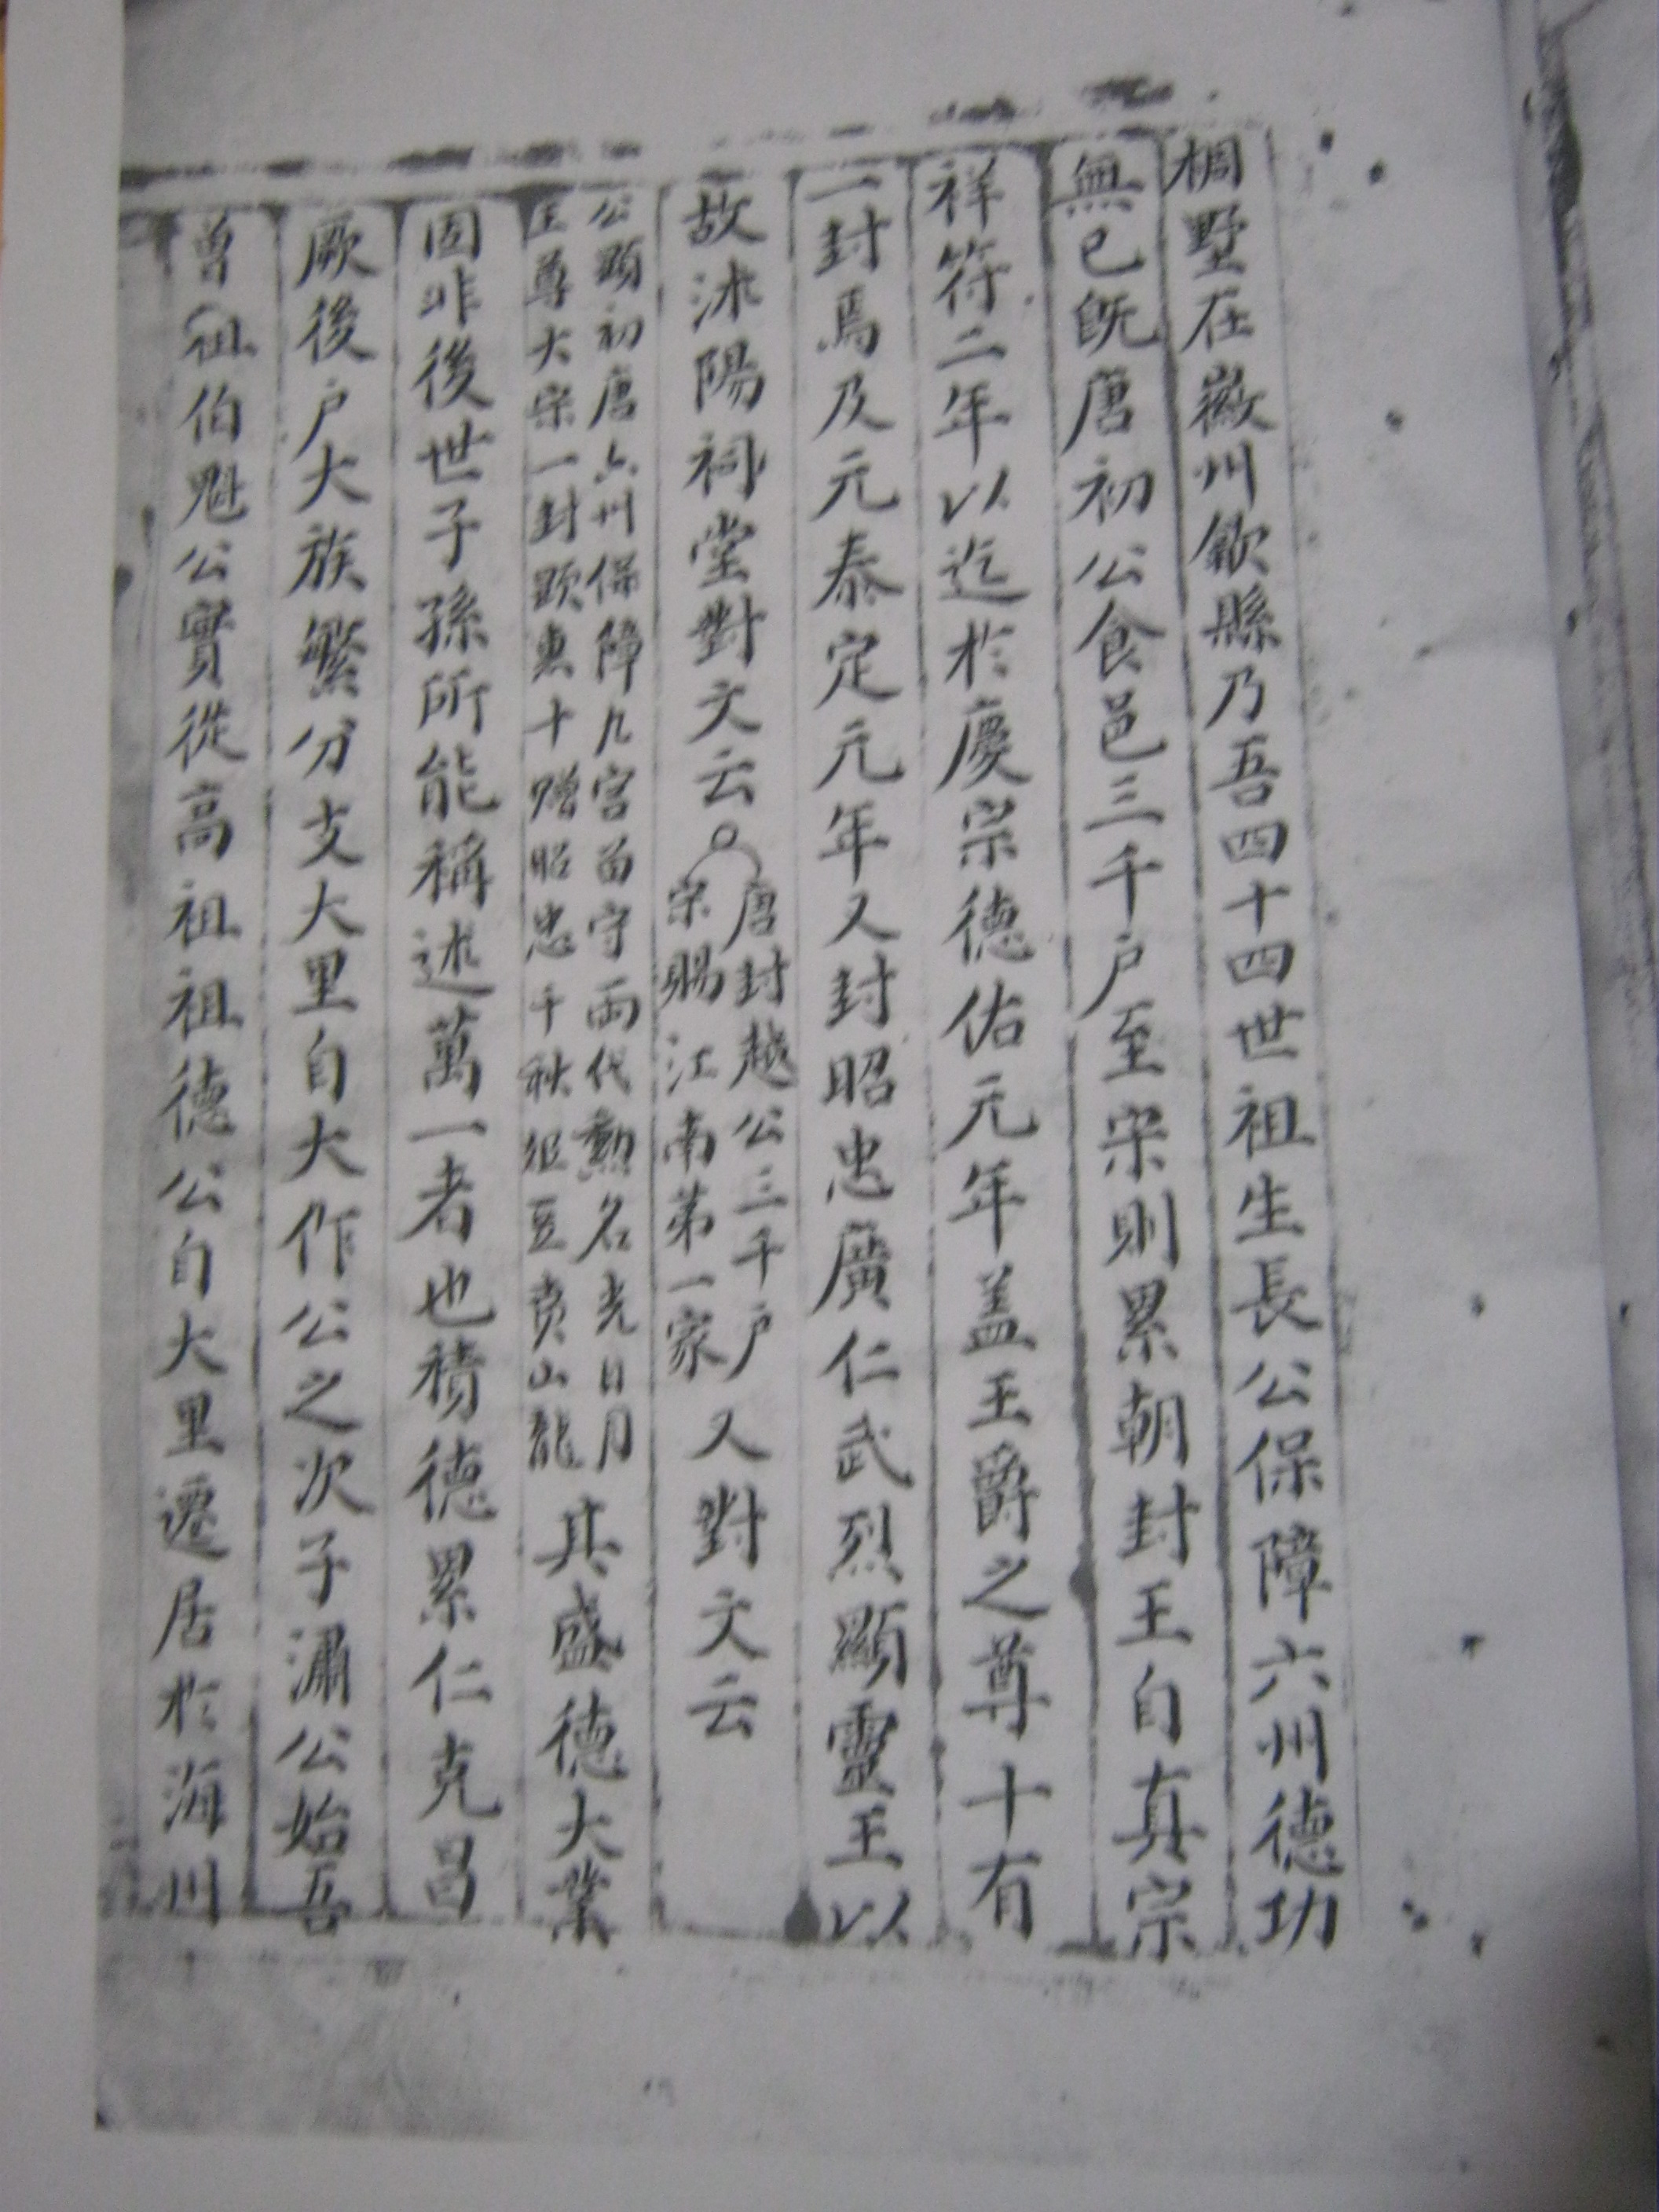 棡墅在徽州歙縣乃吾四十四世祖生長公保障六州德功
無已旣唐初公食邑三千户至宋則累朝封王自真宗
祥符二年以迄於慶宗德佑元年盖王爵之尊十有
一封焉及元泰定元年又封昭忠廣仁武烈顯靈王以
故沭陽祠堂對文云
唐封越公三千户
宋賜江南第一家
又對文云
公顕初唐六州保障九宫留守兩代勳名光日月
王尊大宋一封顕惠十贈昭忠千秋俎豆賁山龍
其盛德大業
固非後世子孫所能稱述萬一者也積德累仁克昌
厥後户大族繁分支大里自大作公之次子潚公始吾
曾祖伯魁公實從高祖祖德公自大里遷居於海州